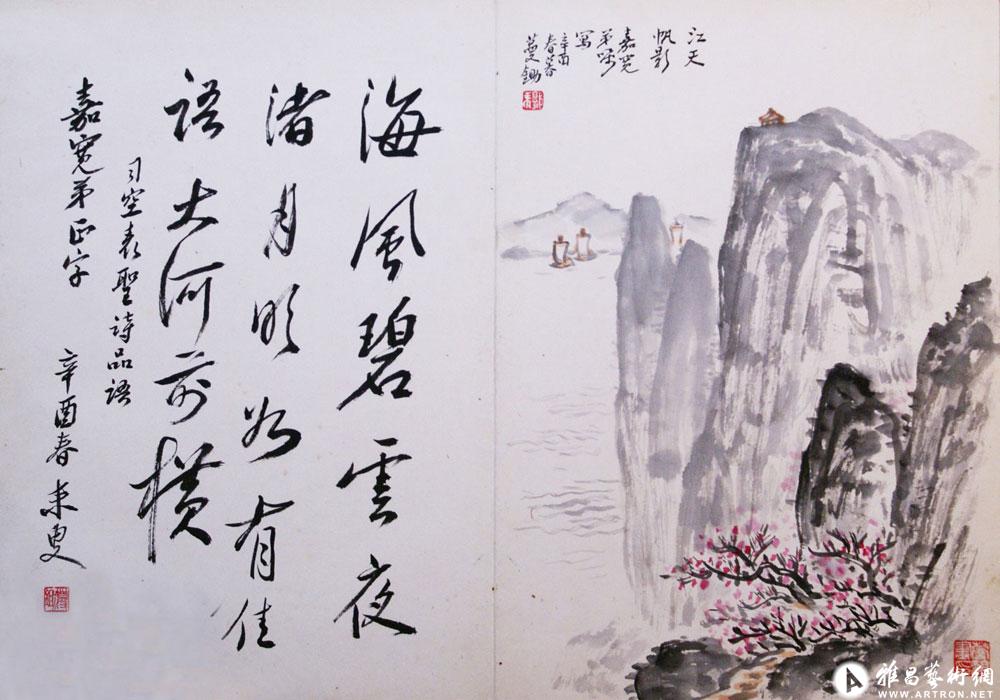 江天
帆影
嘉寬
弟嘱
寫
辛酉
春暮
蔓鋤
海風碧雲夜
渚月明如有佳
語大河前橫
司空表聖詩品語
嘉寬弟正字
辛酉春耒叟
雅昌藝術網
WWW.ARTRON.NET